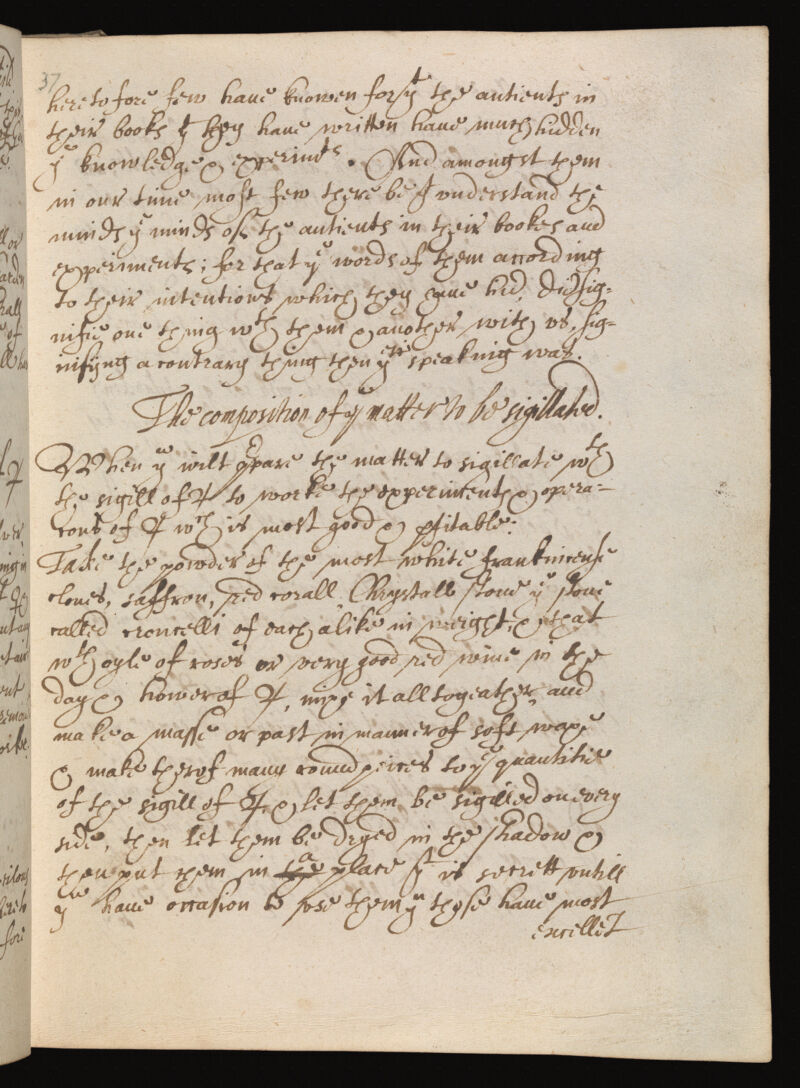 37
heretofore few haue knowen for yt the antients in
their books yt they haue written haue much hidden
ye knowledge & experimts. And amongst them
in our time most few there be yt vnderstand the
minds ye minds of the antients in their bookes and
experiments; for that ye words of them according
to their intentions which they haue hid, did sig-
nifie one thing wth them & another with vs, sig-
nifijng a contrary thing then yeir speaking was.
The composition of ye matter to be sigillated.
When ye wilt ꝑpare the matter to sigillate wth
the sigill of ♃ to worke the experiments & opera-
cons of ♃ wch is most good & ꝓfitable:
Take the powder of the most white frankincense
cloues, saffron, red corall, Chrystall stone ye stone
called of each alike in weight, & that
wth oyle of roses or very good red wine in the
day & hower of ♃, mixe it all togeather and
make a masse or past in manner of soft waxe
& make therof many round peices to ye quantitie
of the sigill of ♃, & let them be sigilled on euery
side, then let them be dryed in the shadow &
then put them in the a place yt is secrett vntill
ye haue occasion to vse them yn those haue most
excellēt